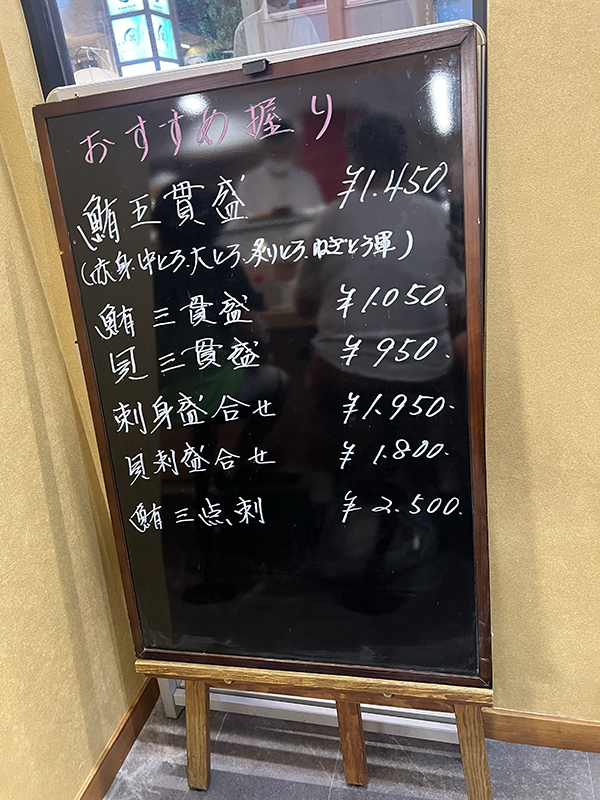 おすすめ握り
鮪五貫盛 ¥1.450.
(赤身.中とろ.大とろ.炙りとろ.ねぎとろ軍)
鮪三貫盛 ¥1.050.
貝三貫盛 ¥950.
刺身盛合せ ¥1.950.
貝刺盛合せ ¥1.800.
鮪三点刺 ¥2.500.